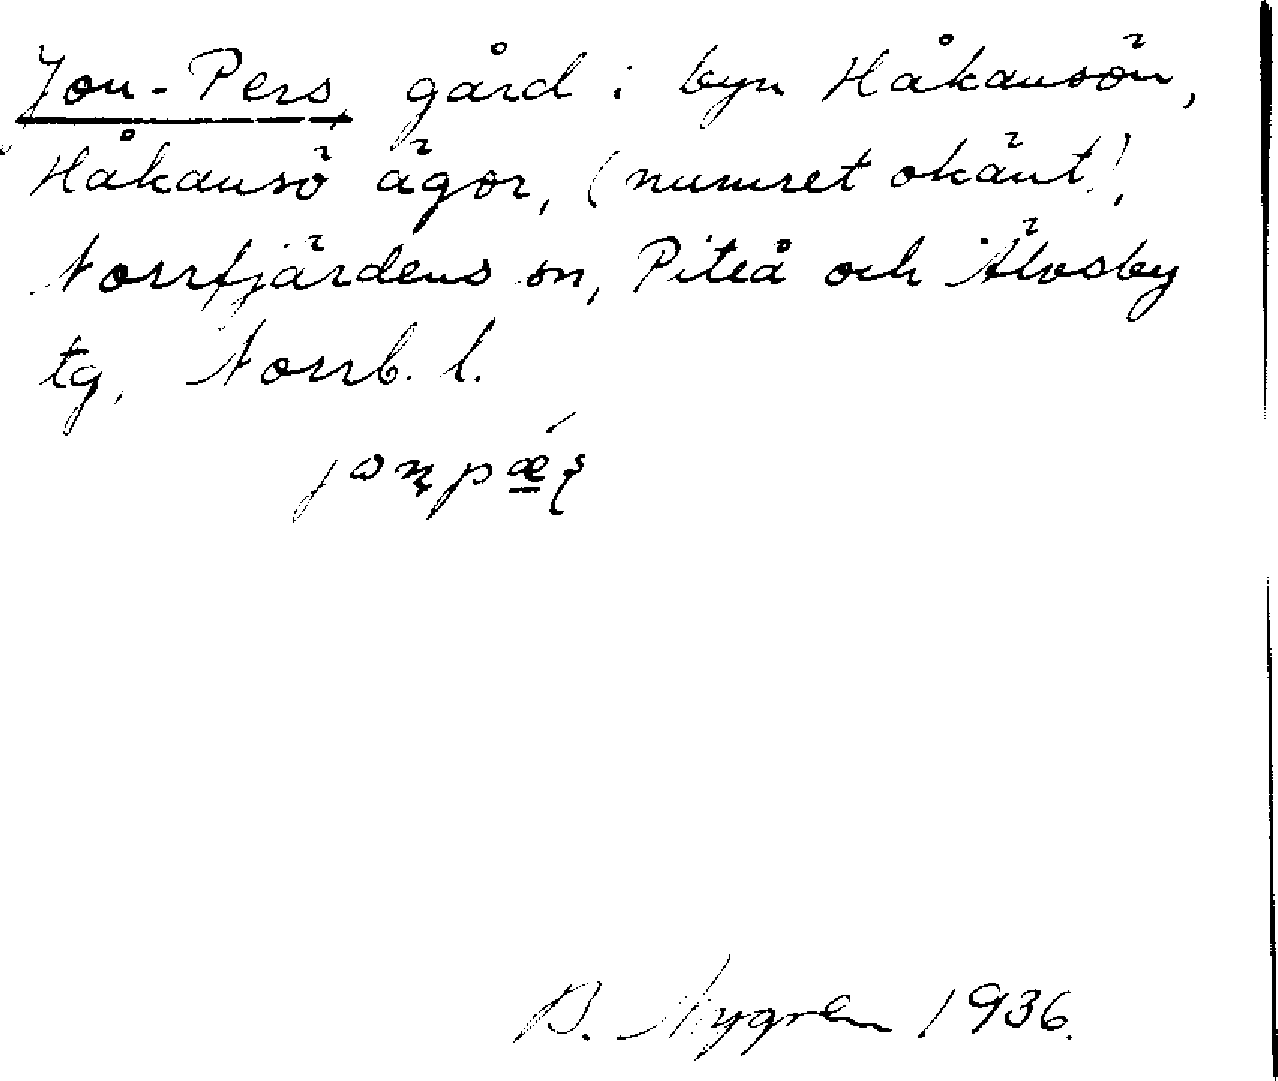 Jon-Pers, gård i byn Håkansön,
Håkansö ägor, (numret okänt),
Norrfjärdens sn, Piteå och Älvsby
tg, Norrb. l.
B. Nygren 1936.